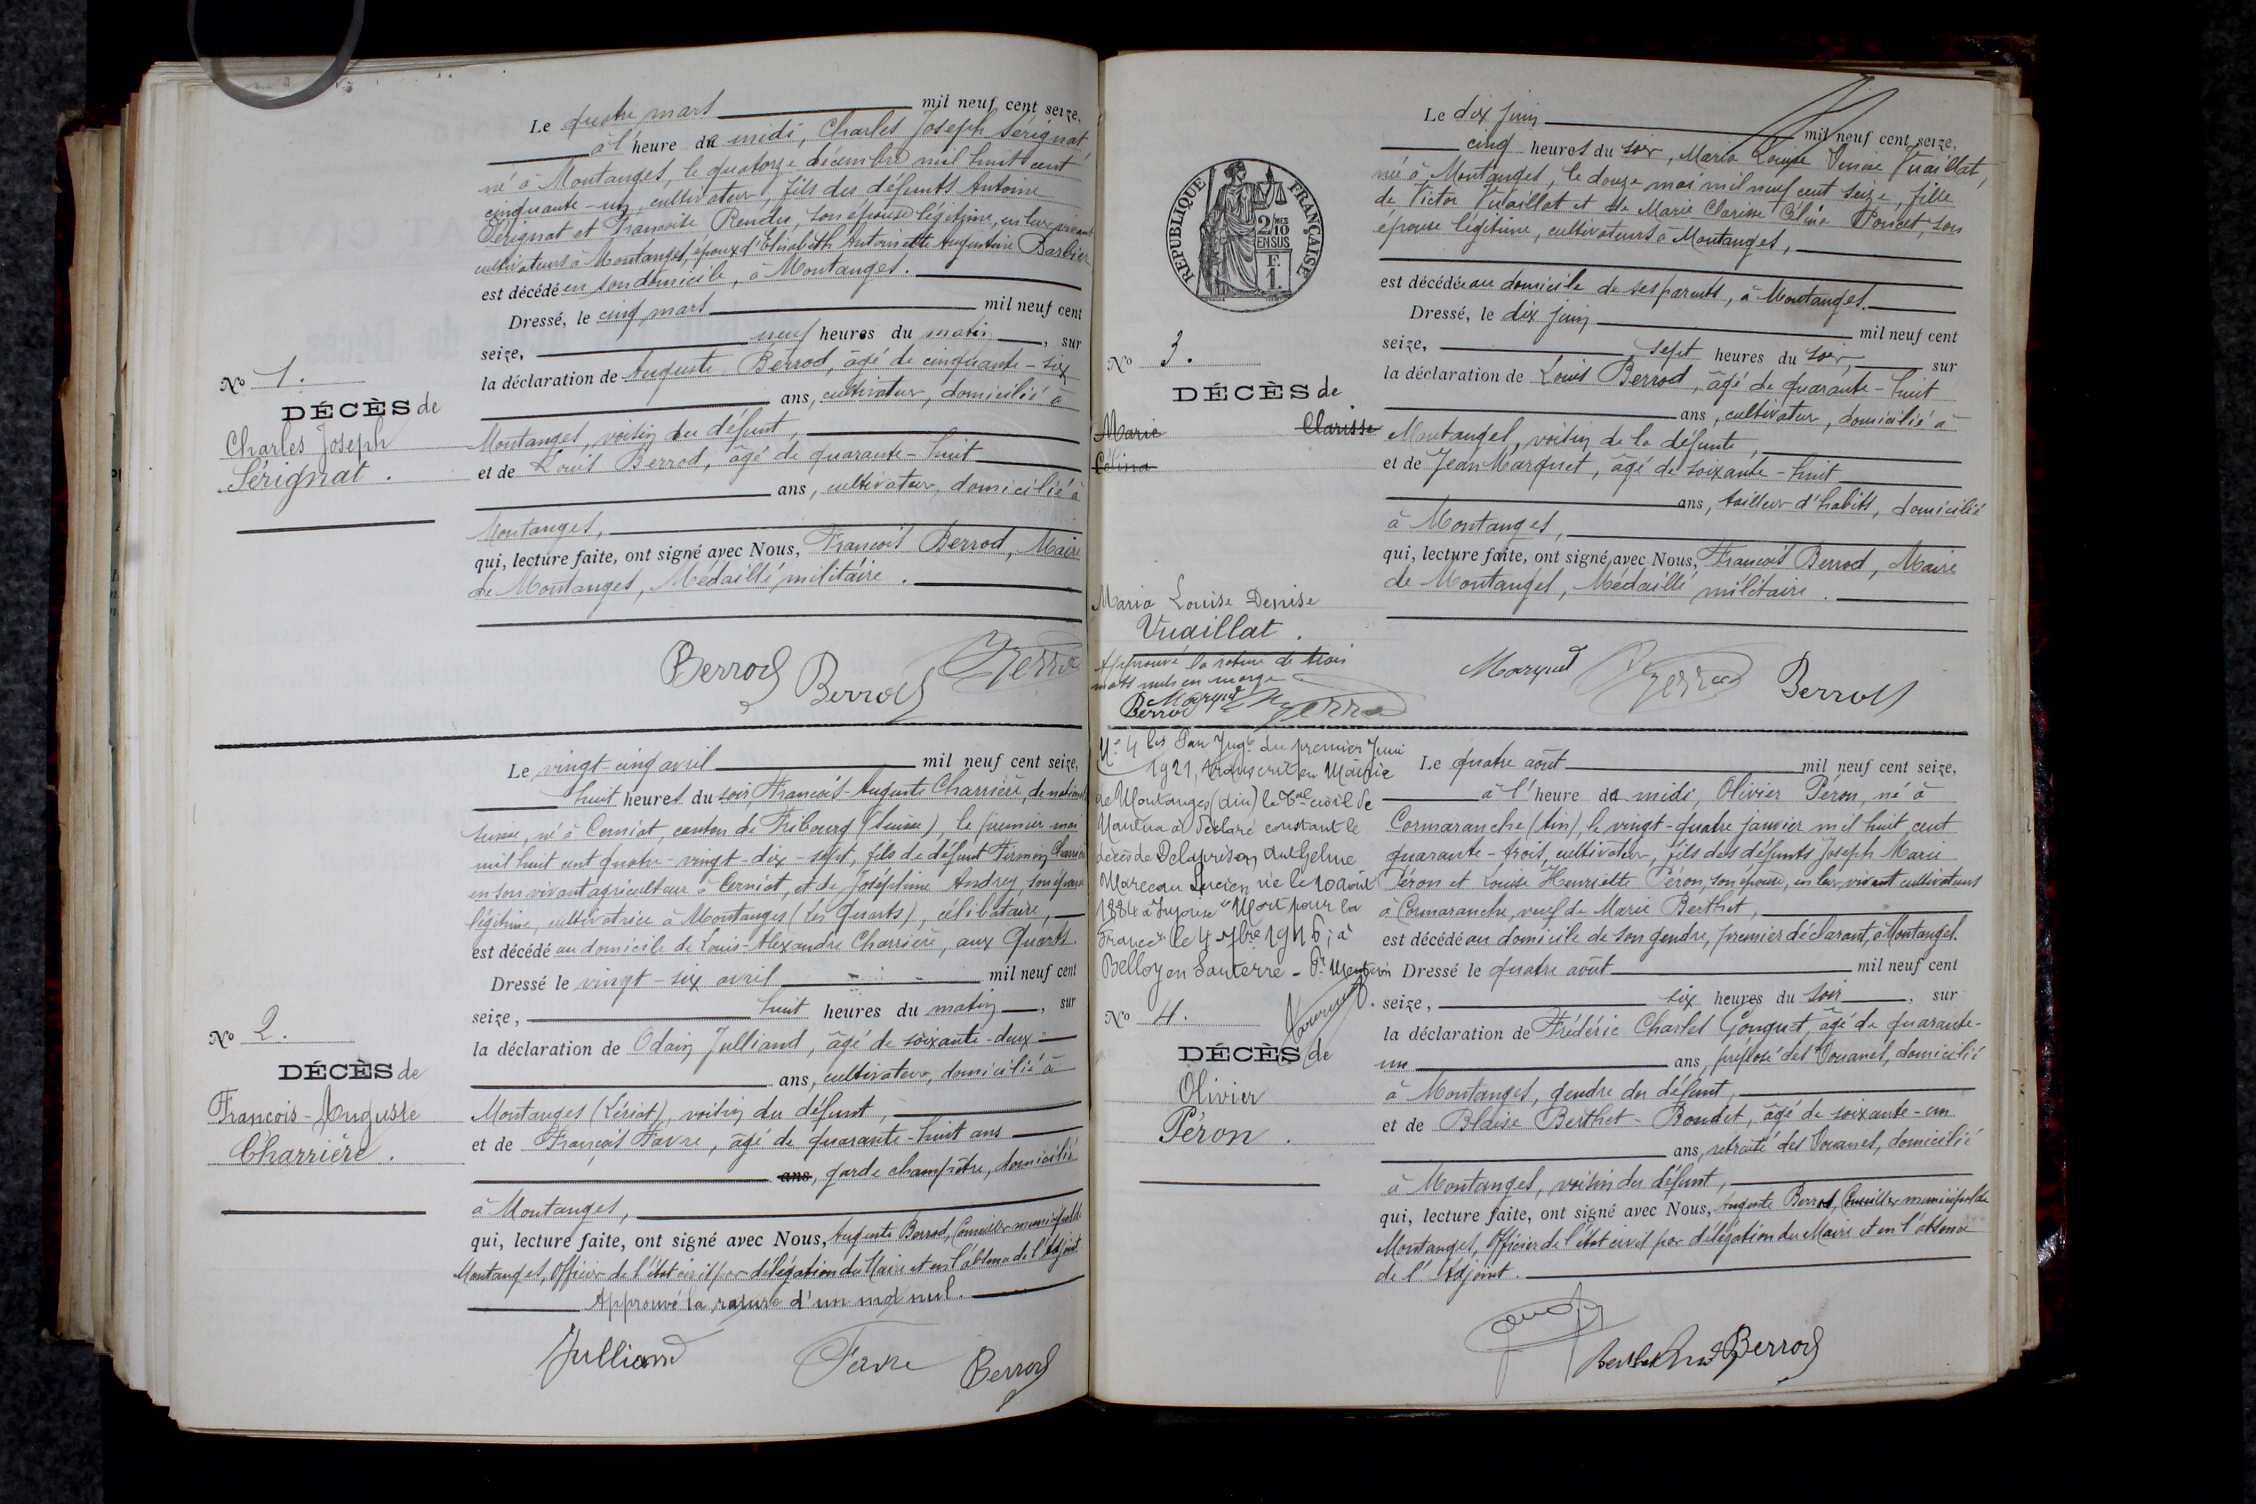 Le quatre mars mil neuf cent seize,
à l'heure de midi, Charles Joseph Sérignat,
né à Montanges, le quatorze décembre mil huit cent
cinquante-un, cultivateur, fils des défunts Antoine
Sérignat et Françoise Rendu, son épouse légitime, en leur vivant
cultivateurs à Montanges, époux d'Elisabeth Antoinette Augustine Barbier
est décédé en son domicile, à Montanges.
Dressé, le cinq mars mil neuf cent
seize, neuf heures du matin, sur
la déclaration de Auguste Berrod, âgé de cinquante-six
ans, cultivateur, domicilié à
Montanges, voisin du défunt,
et de Louis Berrod, âgé de quarante-huit
ans, cultivateur, domicilié à
Montanges,
qui, lecture faite, ont signé avec Nous, François Berrod, Maire
de Montanges, Médaillé militaire.
Nº 1.
DÉCÈS de
Charles Joseph
Sérignat.
Berrod Berrod Berrod
Le vingt-cinq avril mil neuf cent seize,
huit heures du soir, François-Auguste Charrière, de nation
suisse, né à Cerniat, canton de Fribourg (Suisse), le premier mai
mil huit cent quatre-vingt-dix-sept, fils de défunt Firmin Charrière
en son vivant agriculteur à Cerniat, et de Joséphine Andrey, son épouse
légitime, cultivatrice à Montanges (Les Quarts), célibataire,
est décédé au domicile de Louis-Alexandre Charrière, aux Quarts.
Dressé le vingt-six avril mil neuf cent
seize, huit heures du matin, sur
la déclaration de Odain Julliand, âgé de soixante-deux
ans, cultivateur, domicilié à
Montanges (Lériat), voisin du défunt,
et de François Favre, âgé de quarante-huit ans
ans, garde champêtre, domicilié
à Montanges,
qui, lecture faite, ont signé avec Nous, Auguste Berrod, Conseiller municipal de
Montanges, Officier de l'état civil par délégation du Maire et en l'absence de l'Adjoint
Approuvé la rature d'un mot nul.
Nº 2.
DÉCÈS de
François-Auguste
Charrière.
Julliand Favre Berrod
Le dix juin mil neuf cent seize,
cinq heures du soir, Maria Louise Denise Vuaillat,
née à Montanges, le douze mai mil neuf cent seize, fille
de Victor Vuaillat et de Marie Clarisse Célina Poncet, son
épouse légitime, cultivateurs à Montanges,
est décédée au domicile de ses parents, à Montanges.
Dressé, le dix juin mil neuf cent
seize, sept heures du soir, sur
la déclaration de Louis Berrod, âgé de quarante-huit
ans, cultivateur, domicilié à
Montanges, voisin de la défunte,
et de Jean Marquet, âgé de soixante-huit
ans, tailleur d'habits, domicilié
à Montanges,
qui, lecture faite, ont signé avec Nous, François Berrod, Maire
de Montanges, Médaillé militaire.
RÉPUBLIQUE FRANÇAISE
2/10 EN SUS
F. 1.
Nº 3.
DÉCÈS de
Marie Clarisse
Célina
Maria Louise Denise
Vuaillat.
Approuvé la rature de trois
mots nuls en marge
Marquet
Berrod Berrod
Marquet Berrod Berrod
Nº 4 bis Par Jugt du premier Juin
1921, transcrit en Mairie
de Montanges (Ain) le Tbal civil de
Nantua a déclaré constant le
décès de Delaprison Anthelme
Marceau Lucien né le 10 août
1884 à Injoux "Mort pour la
France" le 4 7bre 1916, à
Belloy en Santerre - Pr Mention
Le quatre août mil neuf cent seize,
à l'heure de midi, Olivier Péron, né à
Cormaranche (Ain), le vingt-quatre janvier mil huit cent
quarante-trois, cultivateur, fils des défunts Joseph Marie
Péron et Louise Henriette Péron, son épouse, en leur vivant cultivateurs
à Cormaranche, veuf de Marie Berthet,
est décédé au domicile de son gendre, premier déclarant, à Montanges.
Dressé le quatre août mil neuf cent
seize, six heures du soir, sur
la déclaration de Frédéric Charles Gouguet, âgé de quarante-
un ans, préposé des Douanes, domicilié
à Montanges, gendre du défunt,
et de Blaise Berthet-Bondet, âgé de soixante-un
ans, retraité des Douanes, domicilié
à Montanges, voisin du défunt,
qui, lecture faite, ont signé avec Nous, Auguste Berrod, Conseiller municipal de
Montanges, Officier de l'état civil par délégation du Maire et en l'absence
de l'Adjoint.
Nº 4.
DÉCÈS de
Olivier
Péron.
Berrod